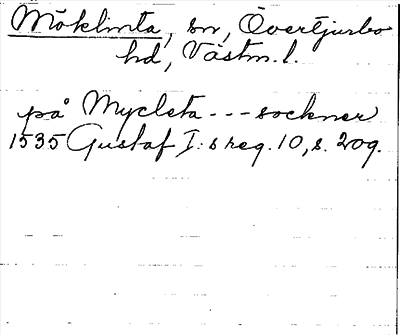 Möklinta, sn, Övertjurbo
hd, Västm. l.
på Myclsta --- sockner
1535 Gustaf I:s reg. 10, s. 209.